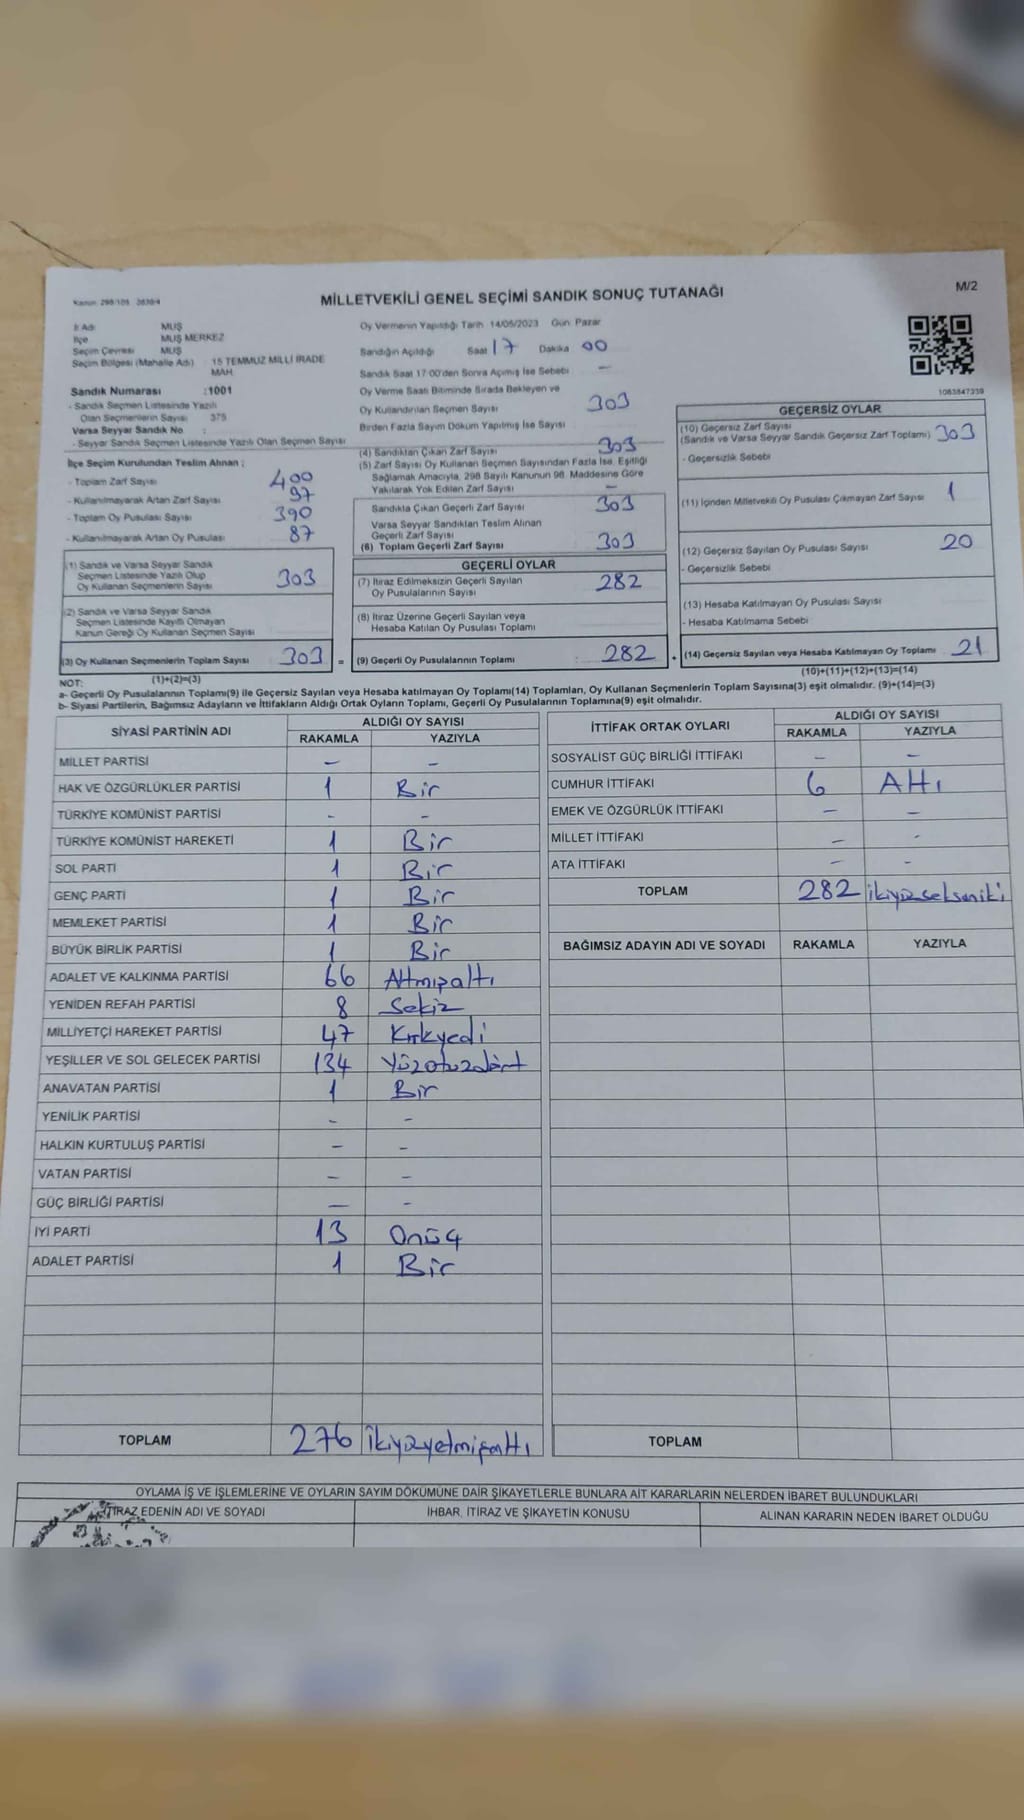 Kanun: 298/105 2839/4
MİLLETVEKİLİ GENEL SEÇİMİ SANDIK SONUÇ TUTANAĞI
M/2
İl Adı MUŞ
İlçe MUŞ MERKEZ
Seçim Çevresi MUŞ
Seçim Bölgesi (Mahalle Adı) 15 TEMMUZ MİLLİ İRADE
MAH.
Sandık Numarası :1001
- Sandık Seçmen Listesinde Yazılı
Olan Seçmenlerin Sayısı 375
Varsa Seyyar Sandık No :
- Seyyar Sandık Seçmen Listesinde Yazılı Olan Seçmen Sayısı
İlçe Seçim Kurulundan Teslim Alınan ;
- Toplam Zarf Sayısı 400
- Kullanılmayarak Artan Zarf Sayısı 97
- Toplam Oy Pusulası Sayısı 390
- Kullanılmayarak Artan Oy Pusulası 87
(1) Sandık ve Varsa Seyyar Sandık
Seçmen Listesinde Yazılı Olup
Oy Kullanan Seçmenlerin Sayısı 303
(2) Sandık ve Varsa Seyyar Sandık
Seçmen Listesinde Kayıtlı Olmayan
Kanun Gereği Oy Kullanan Seçmen Sayısı
(3) Oy Kullanan Seçmenlerin Toplam Sayısı 303 =
(1)+(2)=(3)
Oy Vermenin Yapıldığı Tarih 14/05/2023 Gün: Pazar
Sandığın Açıldığı Saat 17 Dakika 00
Sandık Saat 17:00'den Sonra Açılmış İse Sebebi —
Oy Verme Saati Bitiminde Sırada Bekleyen ve
Oy Kullandırılan Seçmen Sayısı 303
Birden Fazla Sayım Döküm Yapılmış İse Sayısı
(4) Sandıktan Çıkan Zarf Sayısı 303
(5) Zarf Sayısı Oy Kullanan Seçmen Sayısından Fazla İse, Eşitliği
Sağlamak Amacıyla, 298 Sayılı Kanunun 98. Maddesine Göre
Yakılarak Yok Edilen Zarf Sayısı —
Sandıkta Çıkan Geçerli Zarf Sayısı 303
Varsa Seyyar Sandıktan Teslim Alınan
Geçerli Zarf Sayısı
(6) Toplam Geçerli Zarf Sayısı 303
GEÇERLİ OYLAR
(7) İtiraz Edilmeksizin Geçerli Sayılan
Oy Pusulalarının Sayısı 282
(8) İtiraz Üzerine Geçerli Sayılan veya
Hesaba Katılan Oy Pusulası Toplamı
(9) Geçerli Oy Pusulalarının Toplamı : 282 +
1063847339
GEÇERSİZ OYLAR
(10) Geçersiz Zarf Sayısı
(Sandık ve Varsa Seyyar Sandık Geçersiz Zarf Toplamı) 303
- Geçersizlik Sebebi
(11) İçinden Milletvekili Oy Pusulası Çıkmayan Zarf Sayısı 1
(12) Geçersiz Sayılan Oy Pusulası Sayısı 20
- Geçersizlik Sebebi
(13) Hesaba Katılmayan Oy Pusulası Sayısı
- Hesaba Katılmama Sebebi
(14) Geçersiz Sayılan veya Hesaba Katılmayan Oy Toplamı 21
(10)+(11)+(12)+(13)=(14)
NOT:
a- Geçerli Oy Pusulalarının Toplamı(9) ile Geçersiz Sayılan veya Hesaba katılmayan Oy Toplamı(14) Toplamları, Oy Kullanan Seçmenlerin Toplam Sayısına(3) eşit olmalıdır. (9)+(14)=(3)
b- Siyasi Partilerin, Bağımsız Adayların ve İttifakların Aldığı Ortak Oyların Toplamı, Geçerli Oy Pusulalarının Toplamına(9) eşit olmalıdır.
SİYASİ PARTİNİN ADI
ALDIĞI OY SAYISI
RAKAMLA YAZIYLA
MİLLET PARTİSİ — —
HAK VE ÖZGÜRLÜKLER PARTİSİ 1 Bir
TÜRKİYE KOMÜNİST PARTİSİ - -
TÜRKİYE KOMÜNİST HAREKETİ 1 Bir
SOL PARTİ 1 Bir
GENÇ PARTİ 1 Bir
MEMLEKET PARTİSİ 1 Bir
BÜYÜK BİRLİK PARTİSİ 1 Bir
ADALET VE KALKINMA PARTİSİ 66 Altmışaltı
YENİDEN REFAH PARTİSİ 8 Sekiz
MİLLİYETÇİ HAREKET PARTİSİ 47 Kırkyedi
YEŞİLLER VE SOL GELECEK PARTİSİ 134 Yüzotuzdört
ANAVATAN PARTİSİ 1 Bir
YENİLİK PARTİSİ - -
HALKIN KURTULUŞ PARTİSİ - -
VATAN PARTİSİ - -
GÜÇ BİRLİĞİ PARTİSİ — -
İYİ PARTİ 13 Onüç
ADALET PARTİSİ 1 Bir
TOPLAM 276 ikiyüzyetmişaltı
İTTİFAK ORTAK OYLARI
ALDIĞI OY SAYISI
RAKAMLA YAZIYLA
SOSYALİST GÜÇ BİRLİĞİ İTTİFAKI — —
CUMHUR İTTİFAKI 6 Altı
EMEK VE ÖZGÜRLÜK İTTİFAKI — —
MİLLET İTTİFAKI — -
ATA İTTİFAKI — -
TOPLAM 282 ikiyüzsekseniki
BAĞIMSIZ ADAYIN ADI VE SOYADI RAKAMLA YAZIYLA
TOPLAM
OYLAMA İŞ VE İŞLEMLERİNE VE OYLARIN SAYIM DÖKÜMÜNE DAİR ŞİKAYETLERLE BUNLARA AİT KARARLARIN NELERDEN İBARET BULUNDUKLARI
İTİRAZ EDENİN ADI VE SOYADI İHBAR, İTİRAZ VE ŞİKAYETİN KONUSU ALINAN KARARIN NEDEN İBARET OLDUĞU